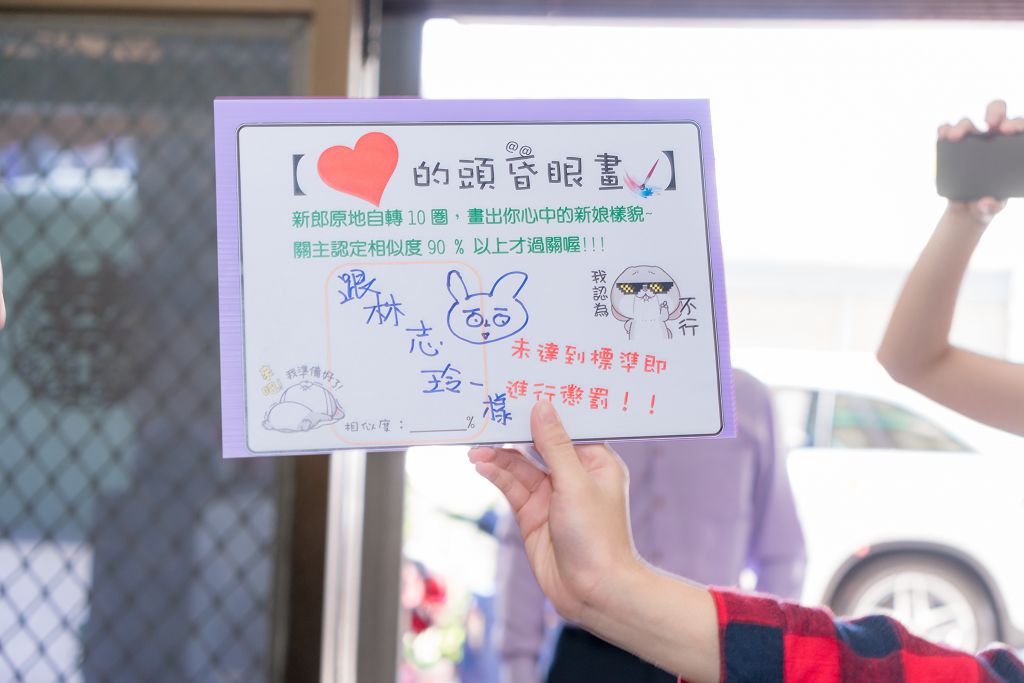 【❤的頭昏眼畫】
新郎原地自轉 10 圈，畫出你心中的新娘樣貌~
關主認定相似度 90 % 以上才過關喔!!!
跟林志玲一樣
我認為
不行
未達到標準即
進行懲罰！！
來吧!
我準備好了!
相似度：______%